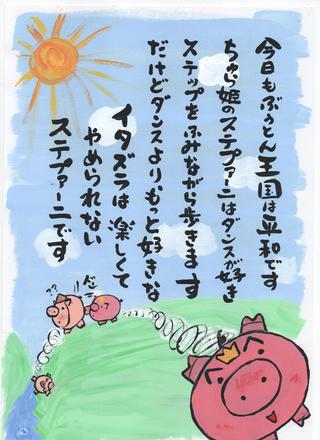 今日もぶぅとん王国は平和です
ちゅら姫のステファーニはダンスが好き
ステップをふみながら歩きます
だけどダンスより、もっと好きな
イタズラは楽しくて
やめられない
ステファーニです
??